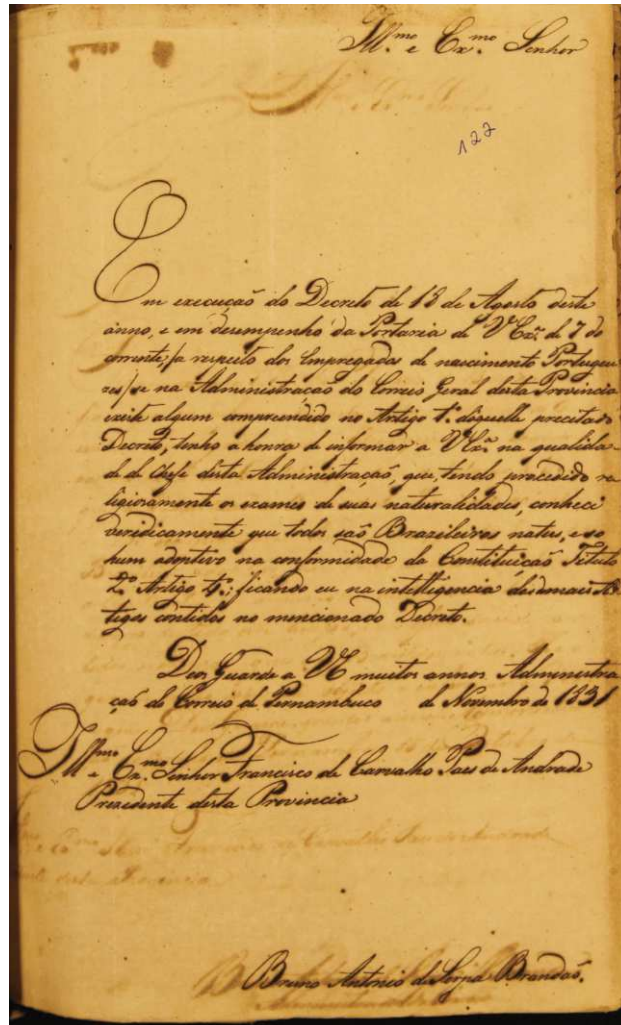 Ill.mo e Ex.mo Senhor
122
Em execução do Decreto de 18 de Agosto deste
anno, e em desempenho da Portaria de VEx.ª de 7 do
corrente, /a respeito dos Empregados de nascimento Portugue
zes/ se na Administração do Correio Geral desta Provincia
existe algum comprendido no Artigo 1.º daquelle precitado
Decreto, tenho a honra de informar a VEx.ª na qualida-
de de Chefe desta Administração, que, tendo procedido re
ligiosamente os exames de suas naturalidades, conheci
veridicamente que todos saõ Brazileiros natus, e so
hum adoptivo na conformidade da Constituiçaõ Titulo
2.º Artigo 4.º; ficando eu na intelligencia dos demais Ar
tigos contidos no mencionado Decreto.
Deos Guarde a VE muitos annos Administra
çaõ do Correio de Pernambuco de Novembro de 1831
Ill.mo e Ex.mo Senhor Francisco de Carvalho Paes de Andrade
Prezidente desta Provincia
Bruno Antonio de Serpa Brandaõ.